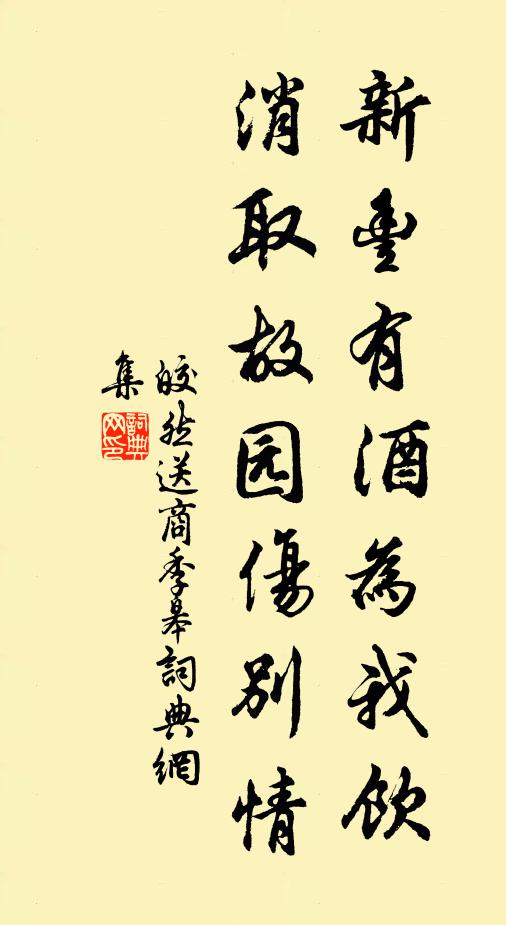 新豐有酒為我飲
消取故园傷別情
皎然送商季皋詞典網
集
詞典网印